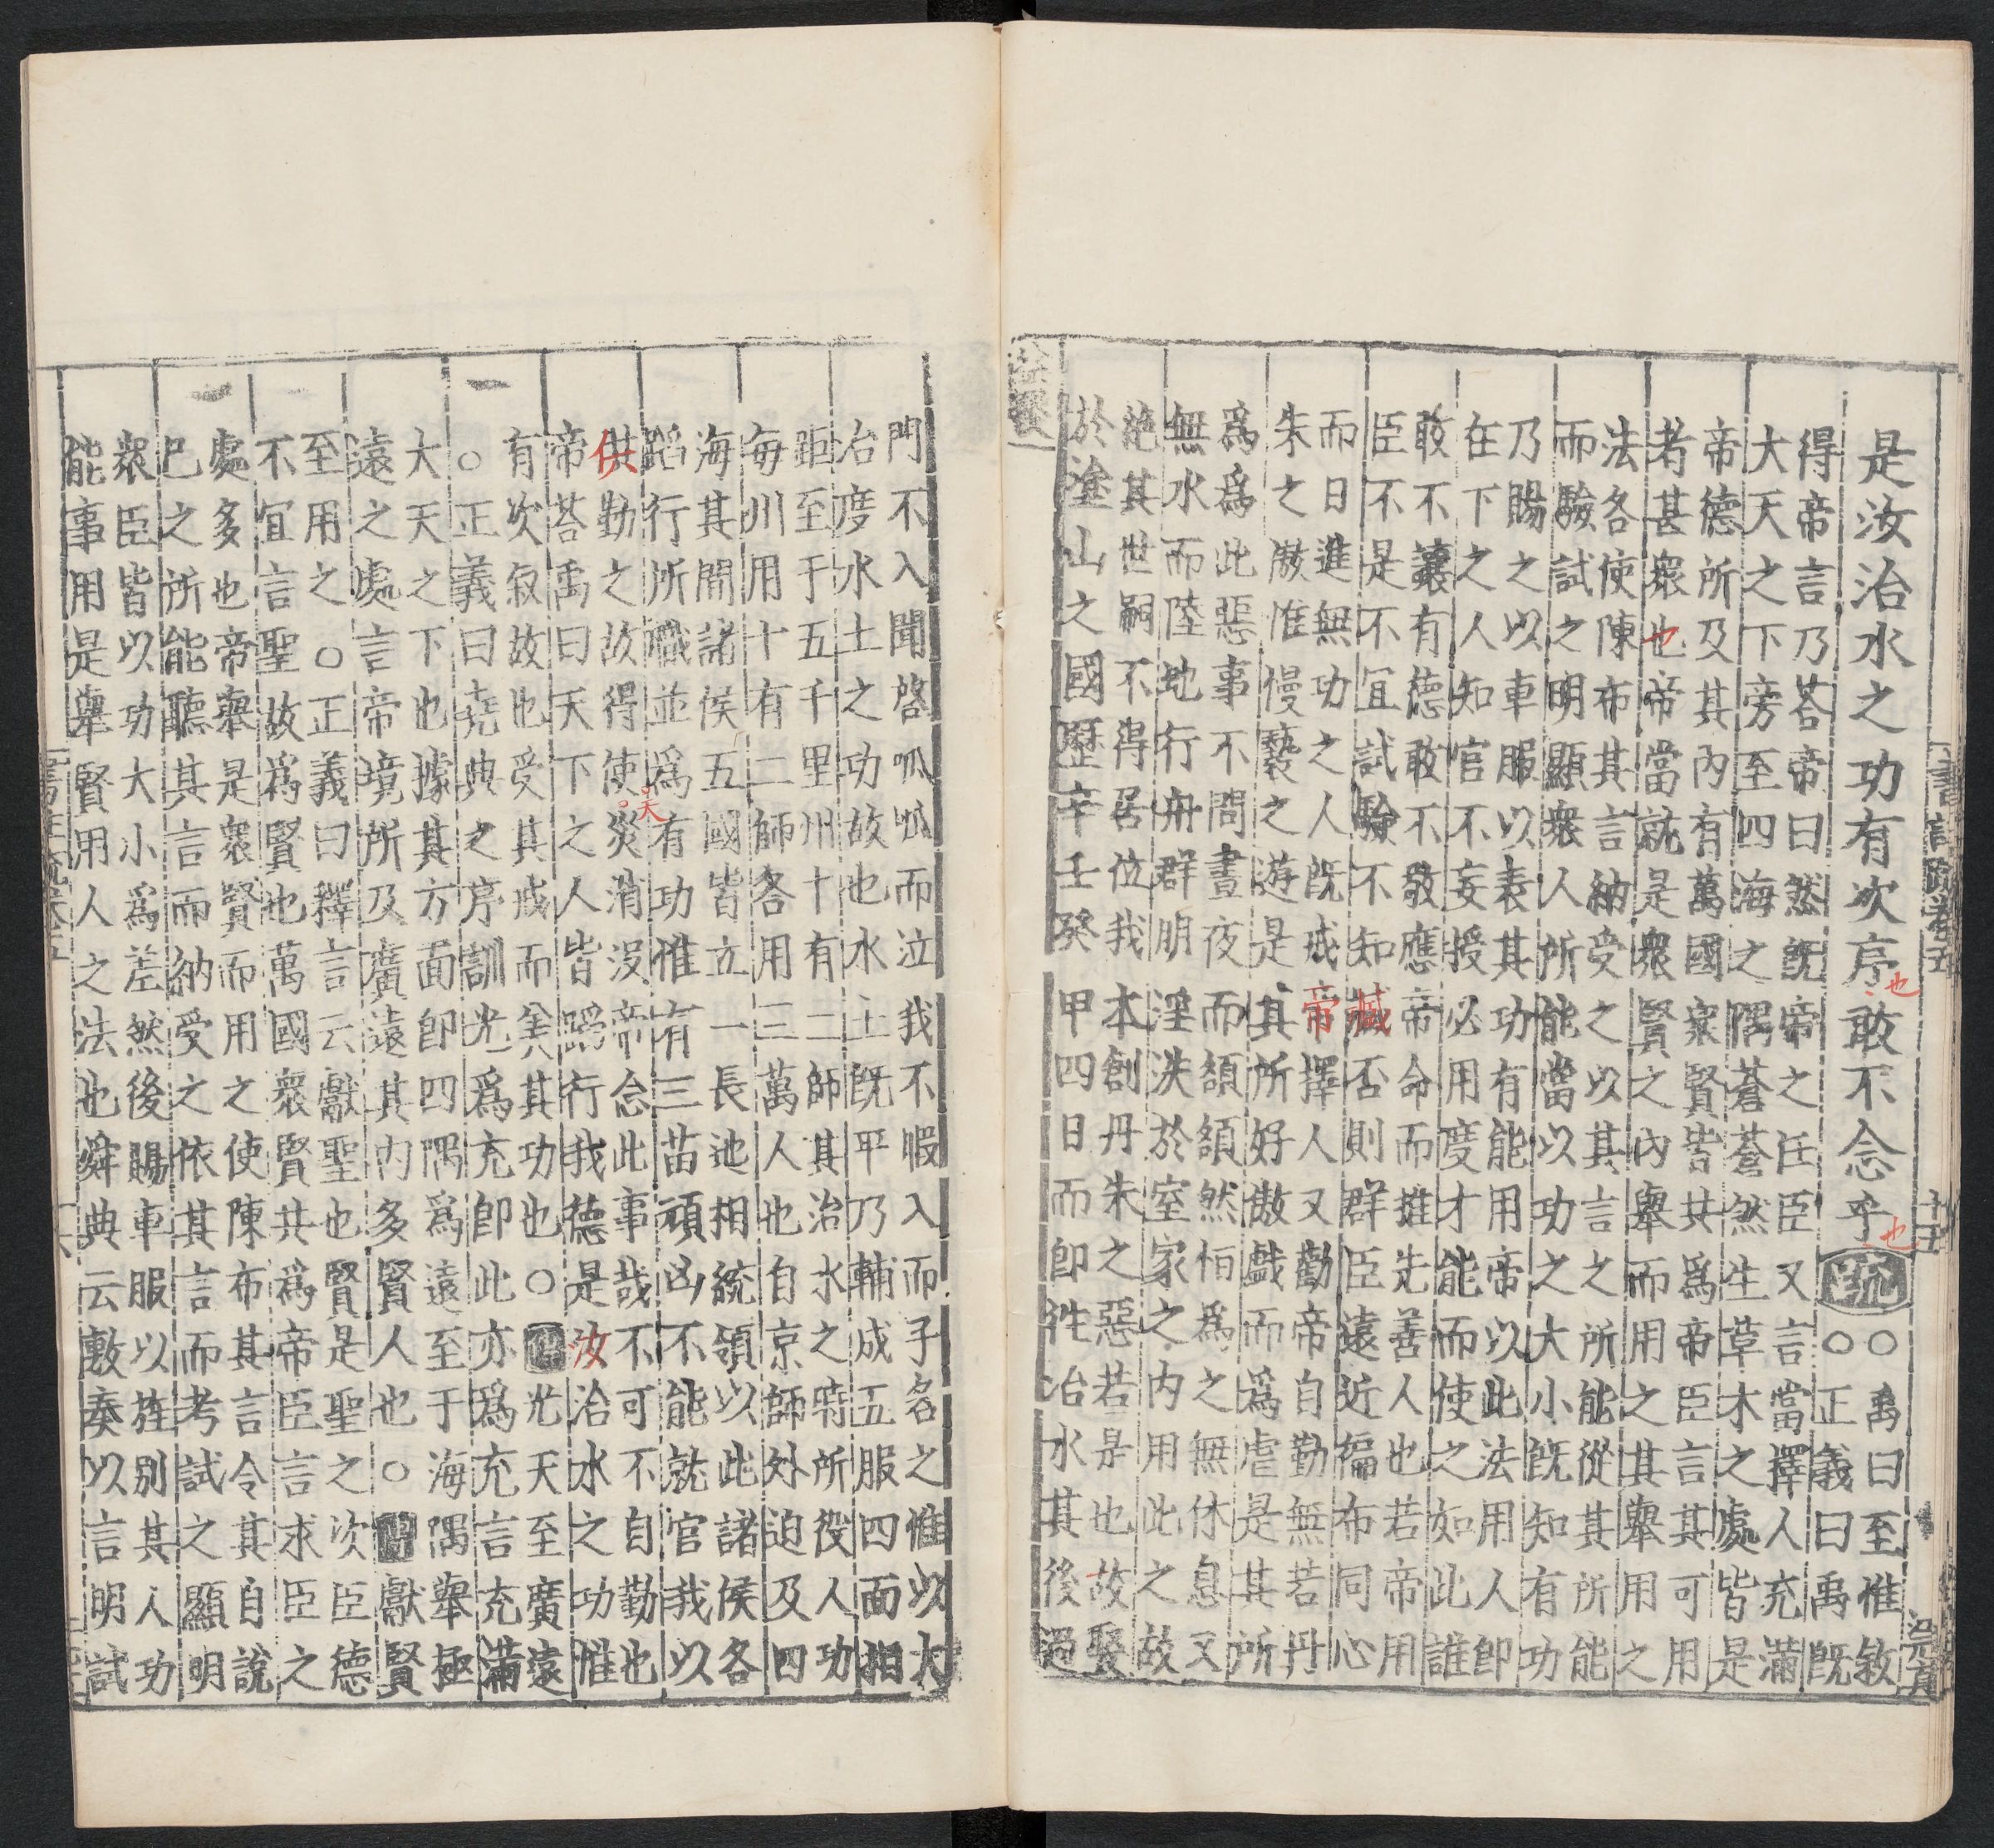 是汝治水之功有次序敢不念乎疏○禹曰至惟敘
○正義曰禹既
得帝言乃荅帝曰然既帝之任臣又言當擇人充滿
大天之下旁至四海之隅蒼蒼然生草木之處皆是
帝德所及其內有萬國衆賢皆共爲帝臣言其可用
者甚衆也帝當就是衆賢之內舉而用之其舉用之
法各使陳布其言納受之以其言之所能從其所能
而驗試之明顯衆人所能當以功之大小既知有功
乃賜之以車服以表其功有能用帝以此法用人即
在下之人知官不妄授必用度才能而使之如此誰
敢不讓有德敢不敬應帝命而推先善人也若帝用
臣不是不宜試驗不知臧否則群臣遠近徧布同心
而日進無功之人既戒帝擇人又勸帝自勤無若丹
朱之傲惟慢褻之遊是其所好傲戲而爲虐是其所
爲爲此惡事不問晝夜而頟頟然恒爲之無休息又
無水而陸地行舟群朋淫泆於室家之內用此之故
絶其世嗣不得居位我本創丹朱之惡若是也故娶
於塗山之國歷辛壬癸甲四日而即往治水其後過
益稷
門不入聞啓呱呱而泣我不暇入而子名之惟以大
治度水土之功故也水土既平乃輔成五服四面相
距至于五千里州十有二師其治水之時所役人功
每州用十有二師各用三萬人也自京師外迫及四
海其間諸侯五國皆立一長迆相統領以此諸侯各
蹈行所職並爲有功惟有三苗頑凶不能就官我以
供勤之故得使災消沒帝念此事哉不可不自勤也
帝荅禹曰天下之人皆蹈行我德是汝治水之功惟
有次敘故也受其戒而美其功也○傳光天至廣遠
○正義曰堯典之序訓光爲充即此亦爲充言充滿
大天之下也據其方面即四隅爲遠至于海隅舉極
遠之處言帝境所及廣遠其內多賢人也○傳獻賢
至用之○正義曰釋言云獻聖也賢是聖之次臣德
不宜言聖故爲賢也萬國衆賢共爲帝臣言求臣之
處多也帝舉是衆賢而用之使陳布其言令其自說
巳之所能聽其言而納受之依其言而考試之顯明
衆臣皆以功大小爲差然後賜車服以旌別其人功
能事用是舉賢用人之法也舜典云敷奏以言明試